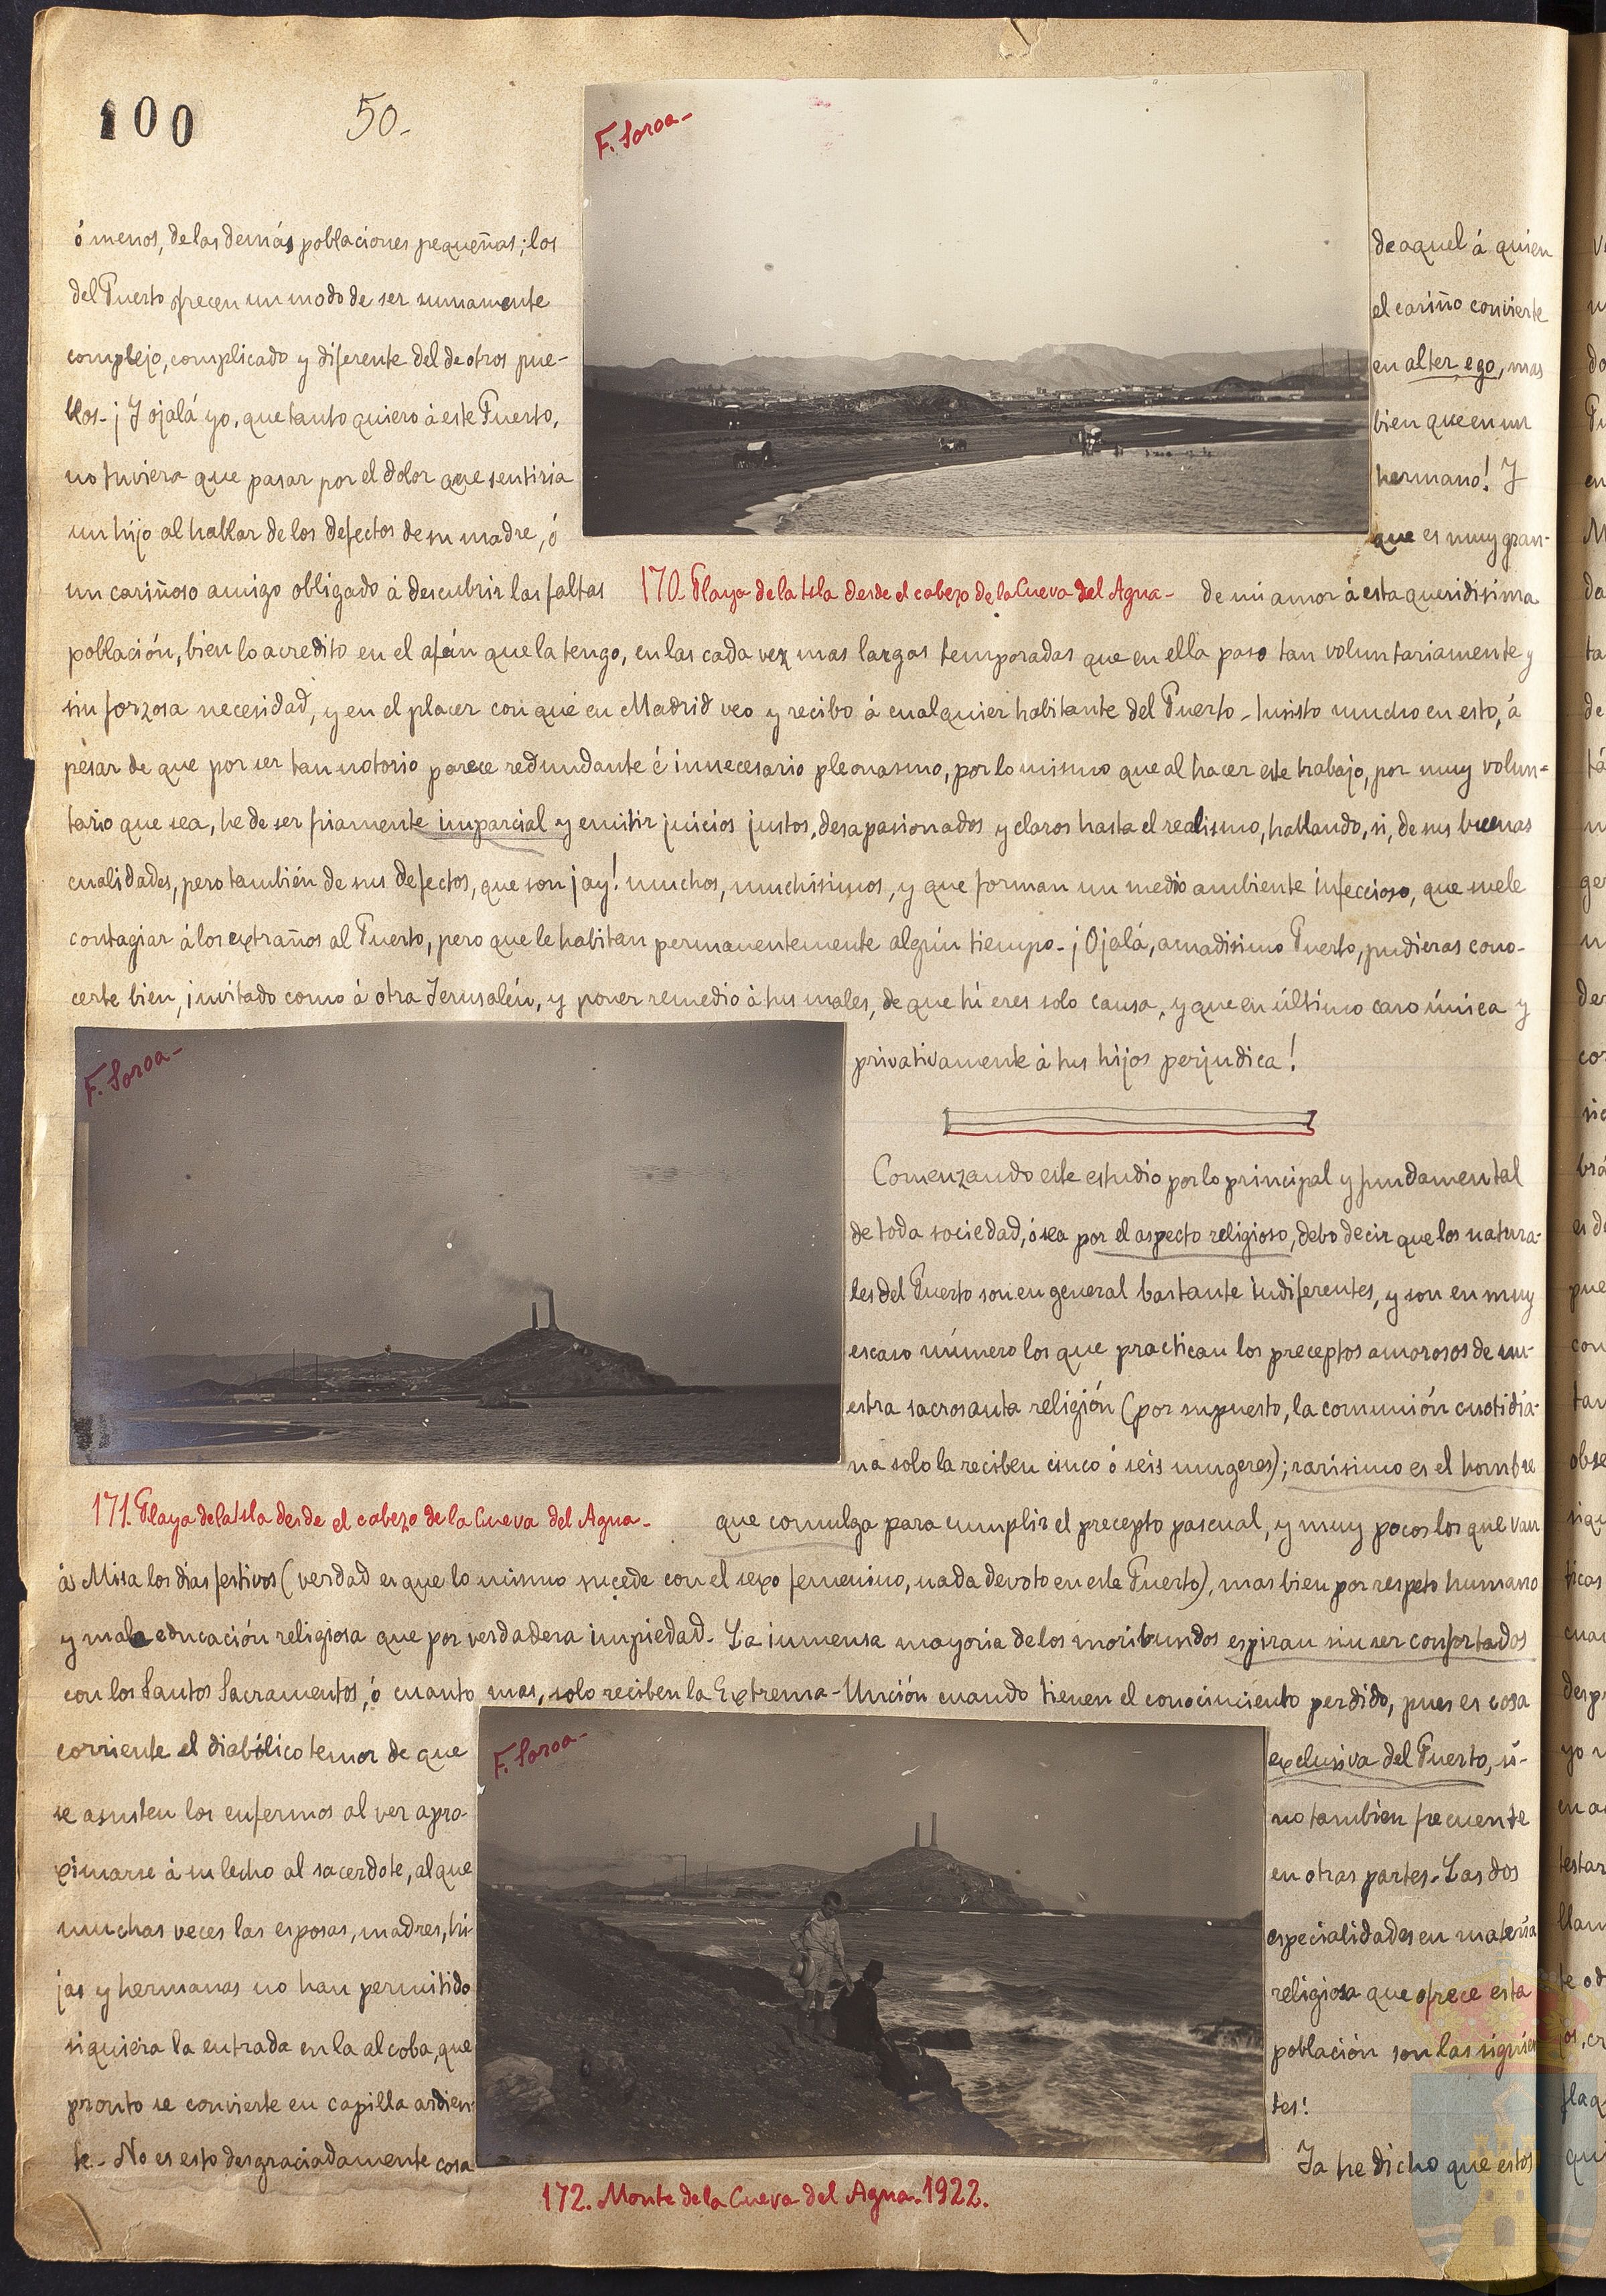 100
50.
F. Soroa-
ó menos, de las demás poblaciones pequeñas; los
del Puerto ofrecen un modo de ser sumamente
complejo, complicado y diferente del de otros pue-
blos- ¡Y ojalá yo, que tanto quiero á este Puerto,
no tuviera que pasar por el dolor que sentiria
un hijo al hablar de los defectos de su madre, ó
un cariñoso amigo obligado á descubrir las faltas
de aquel á quien
el cariño convierte
en alter ego, mas
bien que en un
hermano! Y
que es muy gran-
170. Playa de la Isla desde el cabezo de la Cueva del Agua-
de mi amor á esta queridisima
población, bien lo acredito en el afán que la tengo, en las cada vez mas largas temporadas que en ella paso tan voluntariamente y
sin forzosa necesidad, y en el placer con que en Madrid veo y recibo á cualquier habitante del Puerto- Insisto mucho en esto, á
pesar de que por ser tan notorio parece redundante é innecesario pleonasmo, por lo mismo que al hacer este trabajo, por muy volun-
tario que sea, he de ser friamente imparcial y emitir juicios justos, desapasionados y claros hasta el realismo, hablando, si, de sus buenas
cualidades, pero también de sus defectos, que son ¡ay! muchos, muchisimos, y que forman un medio ambiente infeccioso, que suele
contagiar á los extraños al Puerto, pero que le habitan permanentemente algún tiempo- ¡Ojalá, amadisimo Puerto, pudieras cono-
certe bien, invitado como á otra Jerusalén, y poner remedio á tus males, de que tú eres solo causa, y que en último caso única y
privativamente á tus hijos perjudica!
F. Soroa-
Comenzando este estudio por lo principal y fundamental
de toda sociedad, ó sea por el aspecto religioso, debo decir que los natura-
les del Puerto son en general bastante indiferentes, y son en muy
escaso número los que practican los preceptos amorosos de nu-
estra sacrosanta religión (por supuesto, la comunión cuotidia-
na solo la reciben cinco ó seis mugeres); rarisimo es el hombre
171. Playa de la Isla desde el cabezo de la Cueva del Agua-
que comulga para cumplir el precepto pascual, y muy pocos los que van
á Misa los dias festivos (verdad es que lo mismo sucede con el sexo femenino, nada devoto en este Puerto), mas bien por respeto humano
y mala educación religiosa que por verdadera impiedad- La inmensa mayoria de los moribundos espiran sin ser confortados
con los Santos Sacramentos, ó cuanto mas, solo reciben la Extrema-Unción cuando tienen el conocimiento perdido, pues es cosa
corriente el diabólico temor de que
se asusten los enfermos al ver apro-
ximarse á su lecho al sacerdote, al que
muchas veces las esposas, madres, hi-
jas y hermanas no han permitido
siquiera la entrada en la alcoba, que
pronto se convierte en capilla ardien-
te- No es esto desgraciadamente cosa
F. Soroa-
exclusiva del Puerto, si-
no tambien frecuente
en otras partes- Las dos
especialidades en materia
religiosa que ofrece esta
población son las siguien
tes:
Ya he dicho que estos
172. Monte de la Cueva del Agua. 1922.